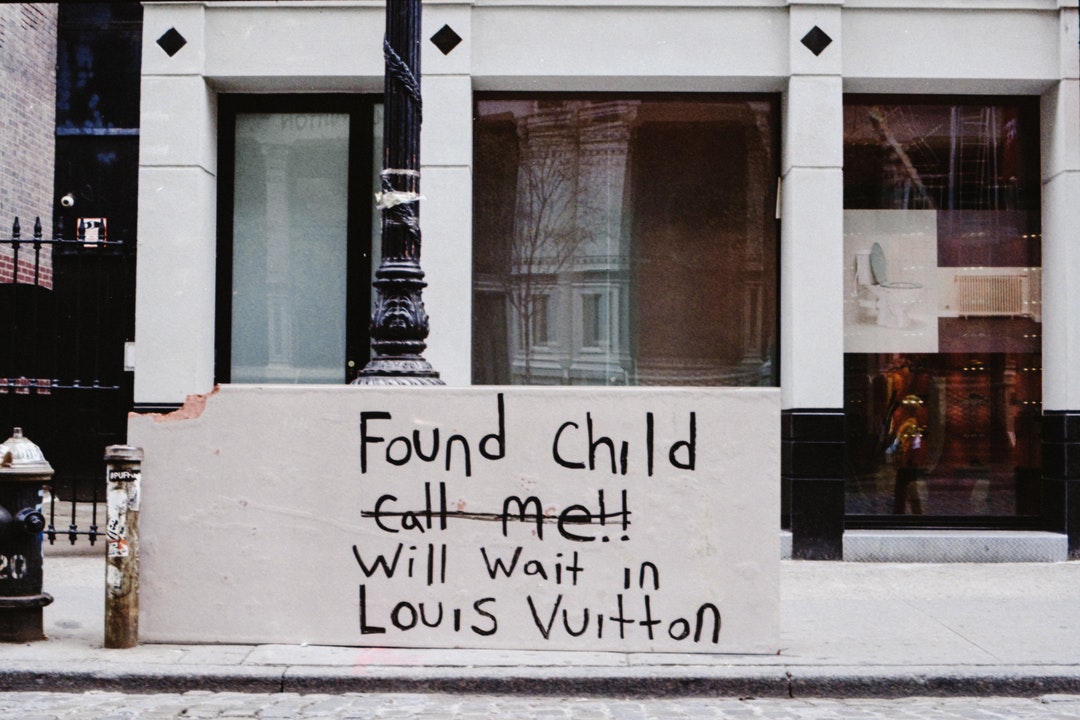 Found Child
Call me!!
Will Wait in
Louis Vuitton
20